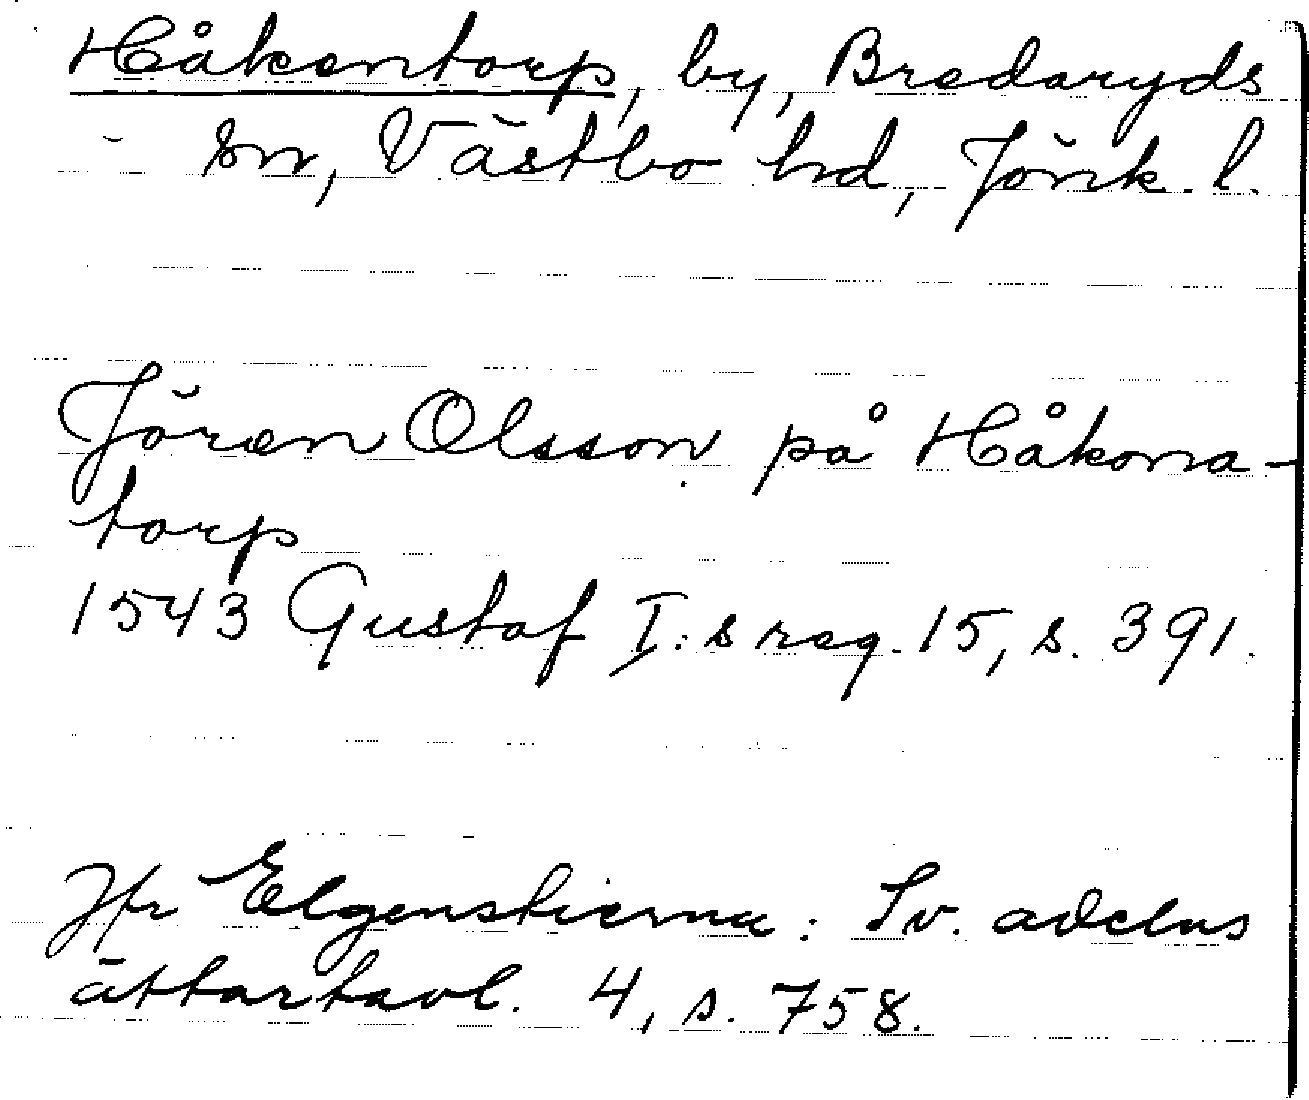 Håkentorp, by, Bredaryds
sn, Västbo hd, Jönk. l.
Jören Olsson på Håkona-
torp
1543 Gustaf I:s reg. 15, s. 391.
Jfr Elgenstierna: Sv. adelns
ättartavl. 4, s. 758.